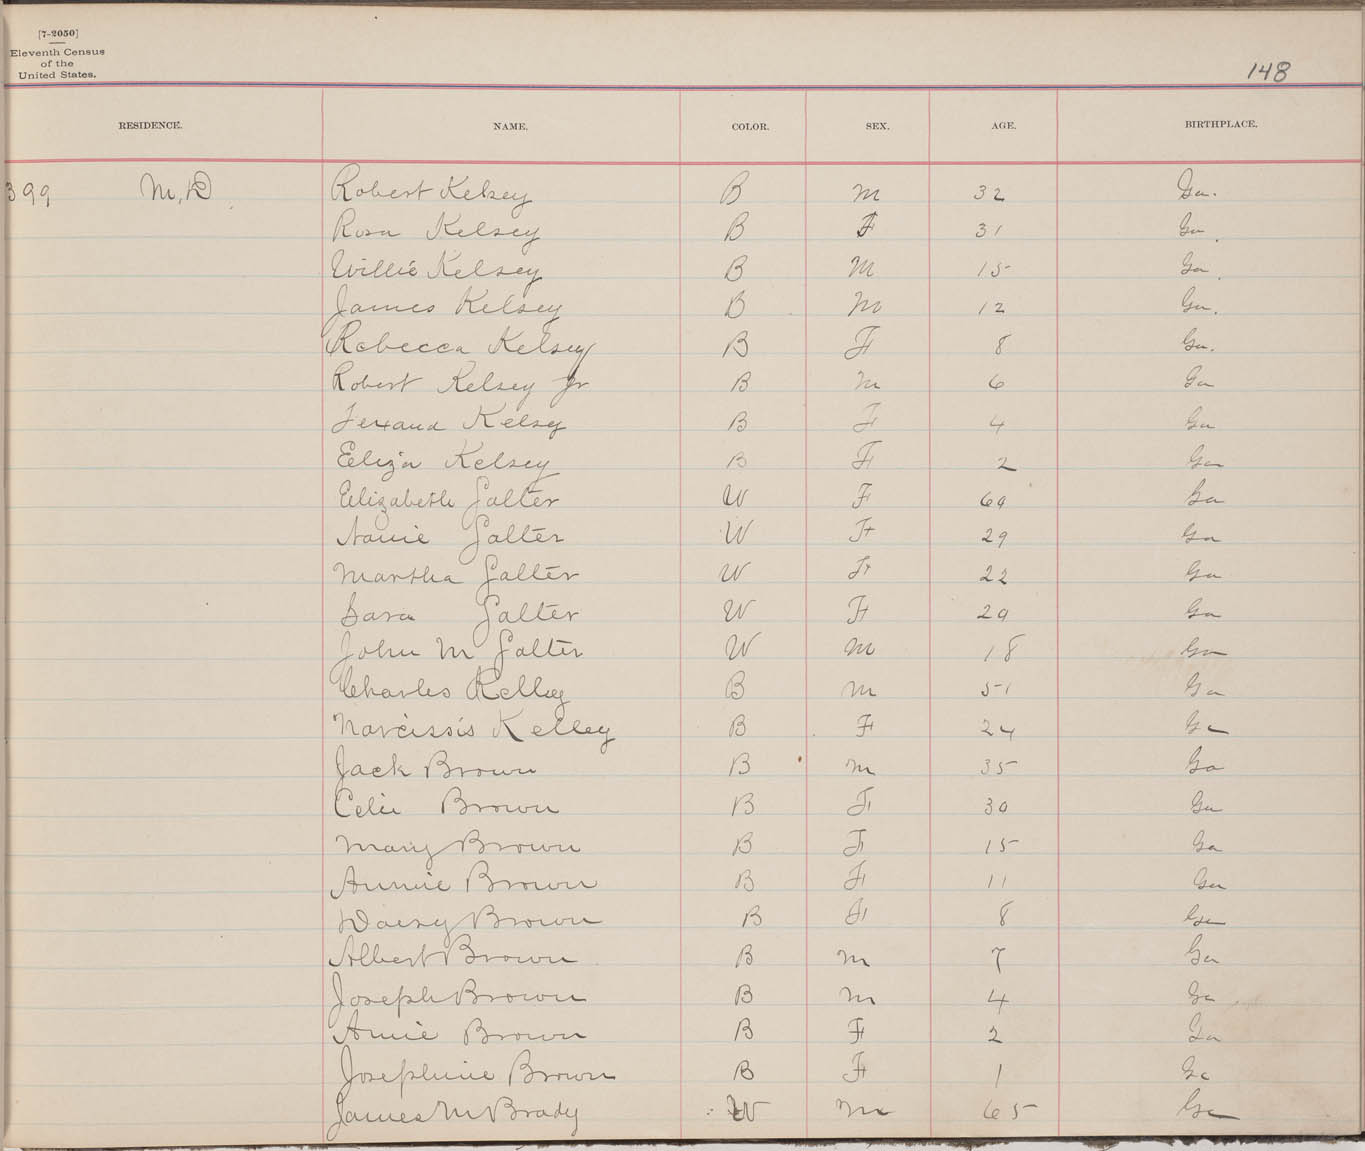 [7-2050]
Eleventh Census
of the
United States.
148
RESIDENCE. NAME. COLOR. SEX. AGE. BIRTHPLACE.
399 M, D Robert Kelsey B M 32 Ga.
Rosa Kelsey B F 31 Ga.
Willie Kelsey B M 15 Ga.
James Kelsey B M 12 Ga.
Rebecca Kelsey B F 8 Ga.
Robert Kelsey Jr B M 6 Ga
Kelsey B F 4 Ga
Eliza Kelsey B F 2 Ga
Elizabeth Salter W F 69 Ga
Nanie Salter W F 29 Ga
Martha Salter W F 22 Ga
Sara Salter W F 20 Ga
John M Salter W M 18 Ga
Charles Kelley B M 51 Ga
Narcissis Kelley B F 24 Ga
Jack Brown B M 35 Ga
Celie Brown B F 30 Ga
Mary Brown B F 15 Ga
Annie Brown B F 11 Ga
Daisy Brown B F 8 Ga
Albert Brown B M 7 Ga
Joseph Brown B M 4 Ga
Amie Brown B F 2 Ga
Josephine Brown B F 1 Ga
James M Brady W M 65 Ga